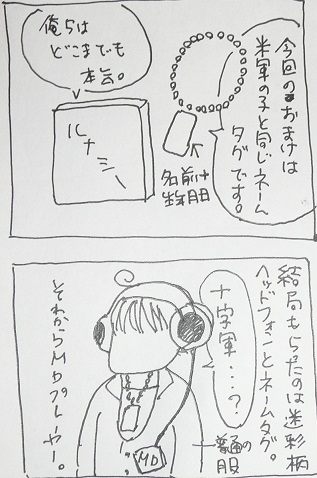 今回のおまけは
米軍の子と同じネーム
タグです。
名前
生年月日
俺らは
どこまでも
本気。
ルナシー
結局もらたのは迷彩柄
ヘッドフォンとネームタグ。
十字軍…?
普通の
服
MD
それからMDプレーヤー。